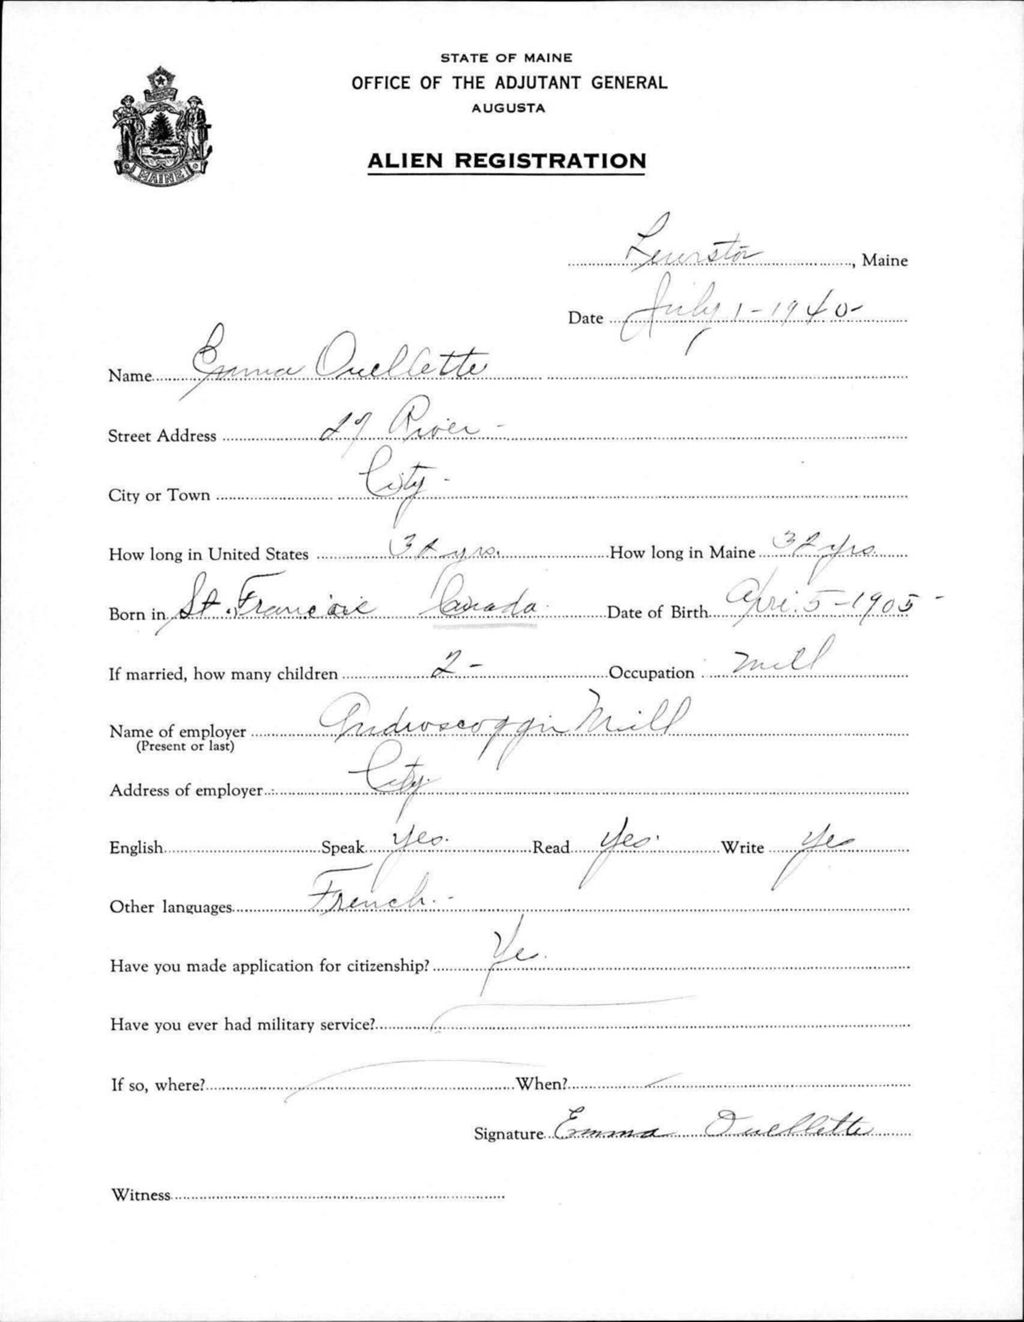 STATE OF MAINE
OFFICE OF THE ADJUTANT GENERAL
AUGUSTA
MAINE
ALIEN REGISTRATION
Lewiston, Maine
Date July 1-1940-
Name Emma Ouellette
Street Address 27 River -
City or Town City -
How long in United States 32 yrs. How long in Maine 32 yrs
Born in St. Francois Canada Date of Birth Apri. 5-1905-
If married, how many children 2- Occupation mill
Name of employer Androscoggin Mill
(Present or last)
Address of employer City.
English Speak Yes. Read Yes. Write Yes
Other languages French. -
Have you made application for citizenship? Yes.
Have you ever had military service?
If so, where? When?
Signature Emma Ouellette
Witness